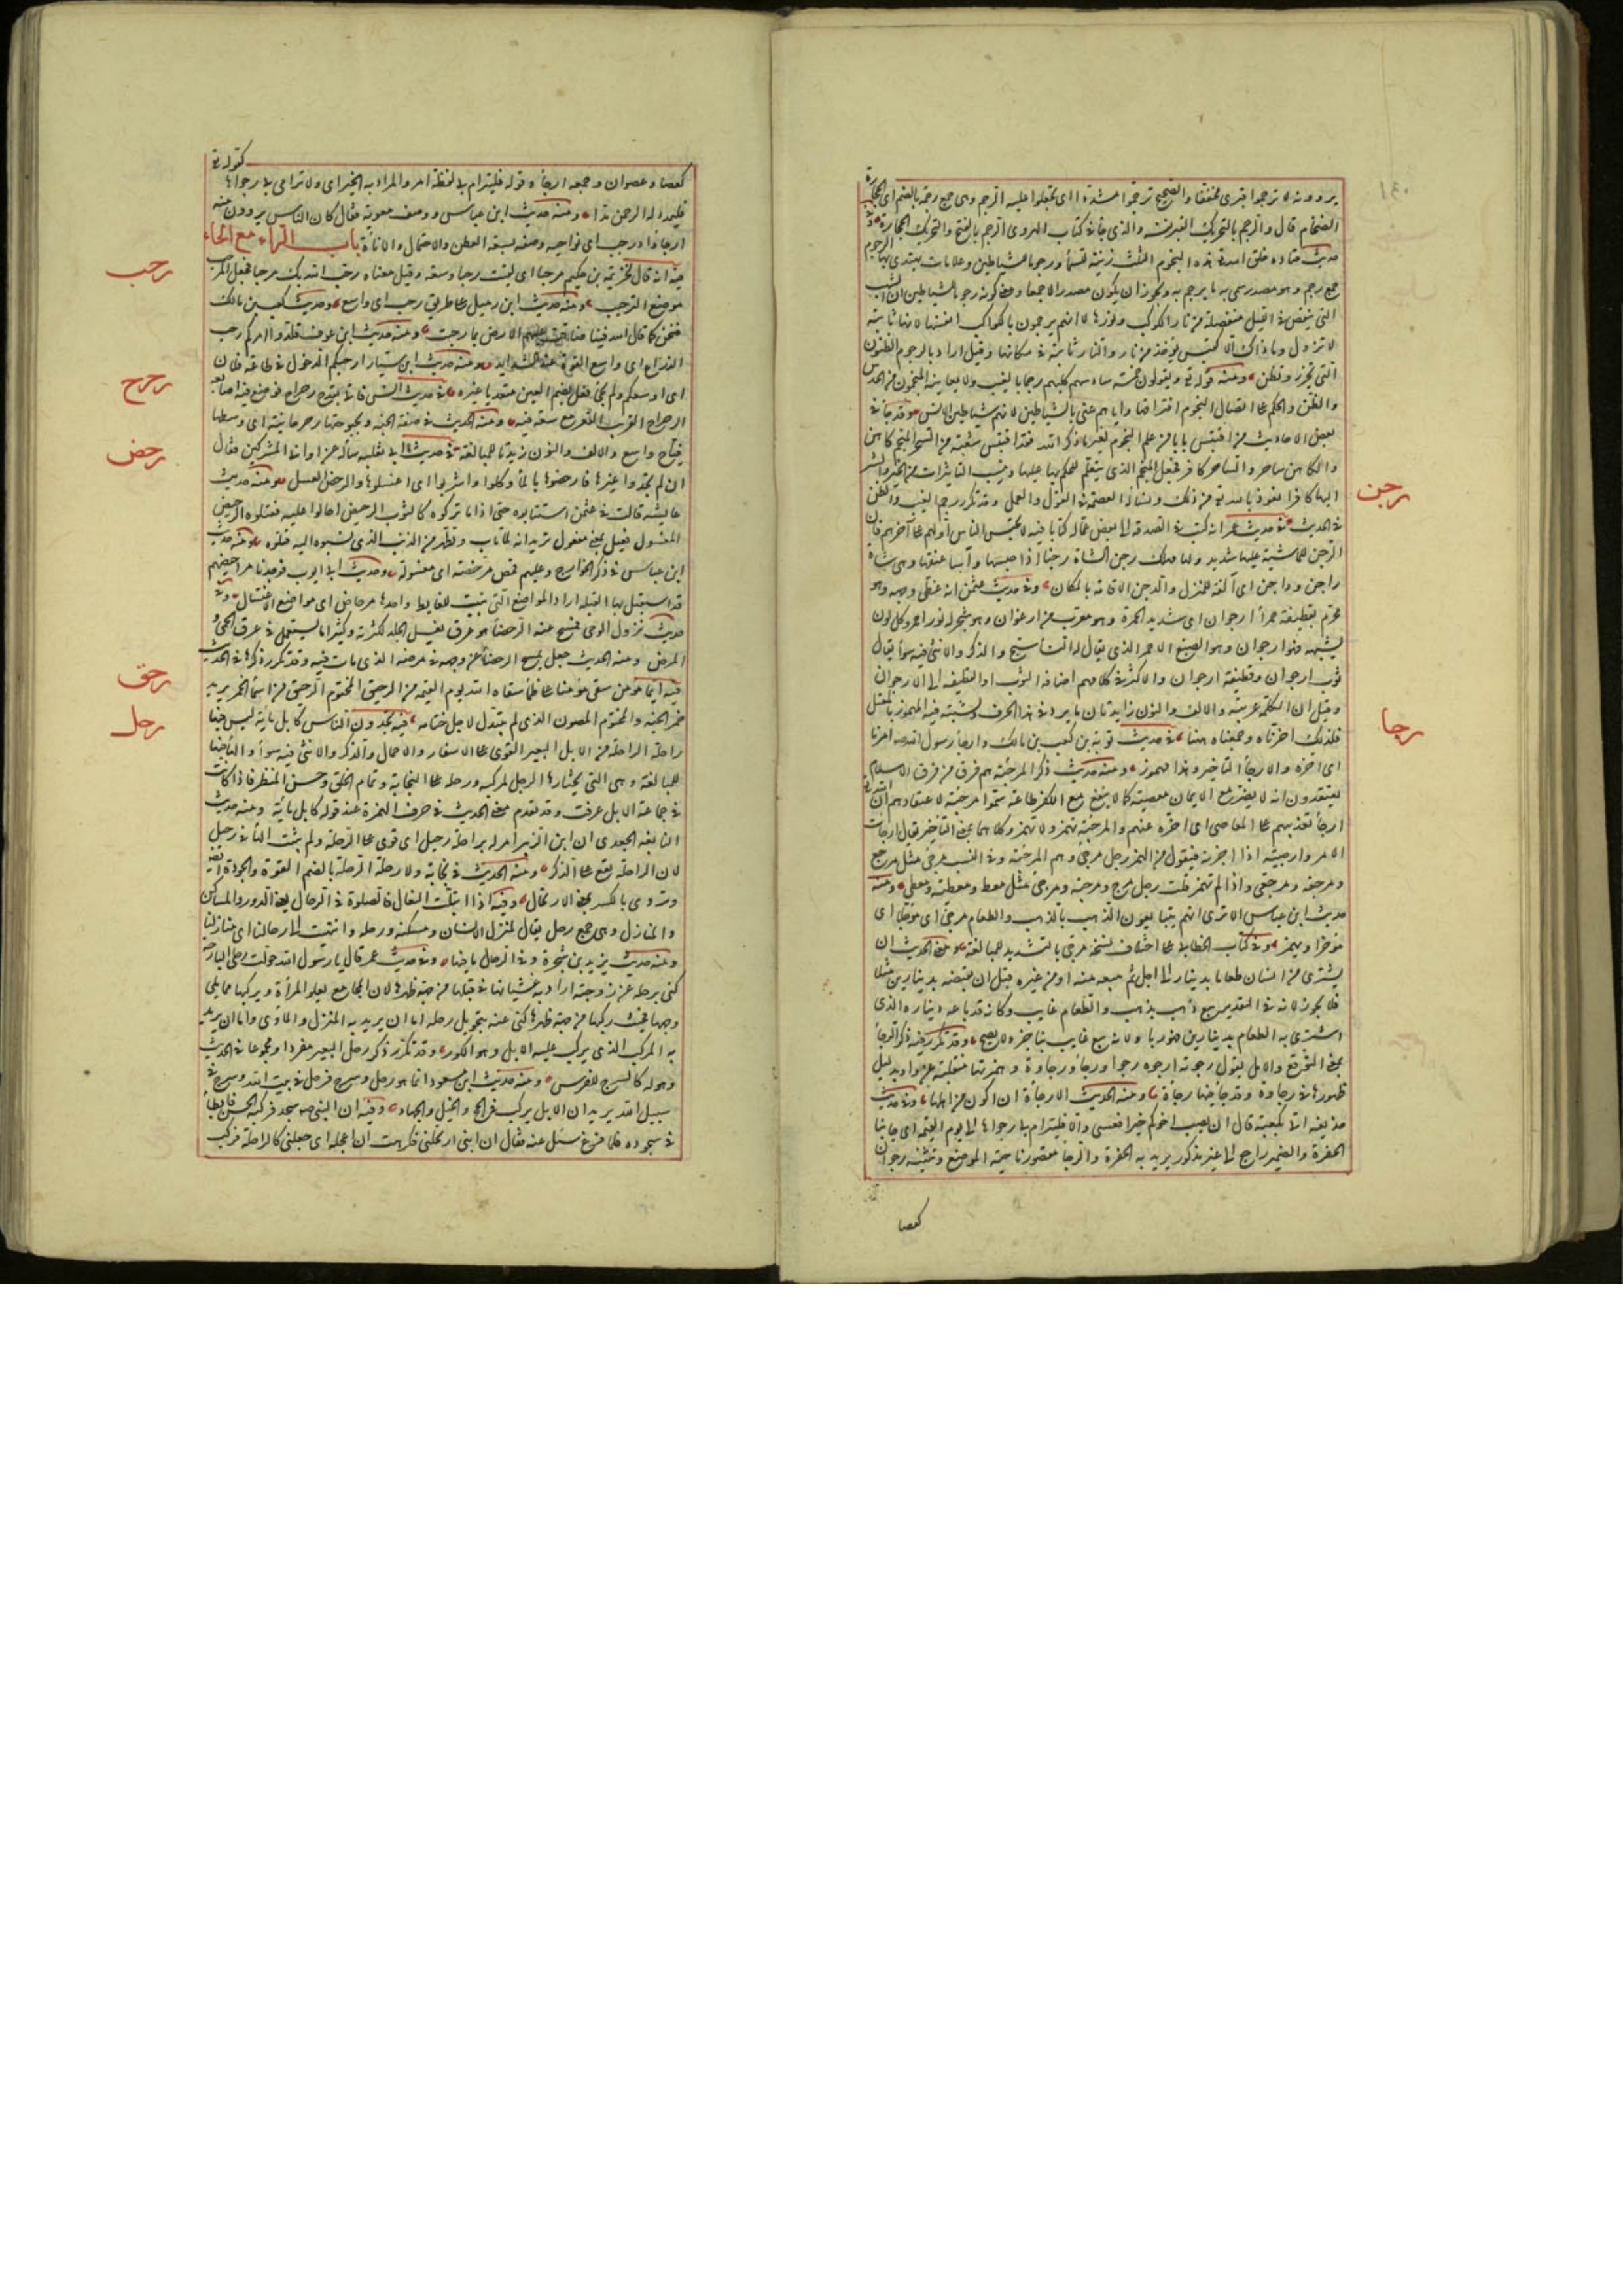 يروونه لا ترجموا قبرى مخففا والصحيح ترجموا مشددا اى لا تجعلوا عليه الرجم وهى جمع رجمة بالضم اى الحجارة
الضخام قال والرجم بالتحريك القبر نفسه والذى جاء فى كتاب الهروى الرجم بالفتح والتحريك الحجارة وفى
حديث قتادة خلق الله هذه النجوم لثلث زينة للسماء ورجوما للشياطين وعلامات يهتدى بها الرجوم
جمع رجم وهو مصدر سمى به ما يرجم به ويجوز ان يكون مصدرا لا جمعا ومعنى كونها رجوما للشياطين ان الشهب
التى تنقض فى الليل منفصلة من نار الكواكب ونورها لا انهم يرجمون بالكواكب انفسها لانها ثابتة
لا تزول وما ذاك الا كقبس يؤخذ من نار والنار ثابتة فى مكانها وقيل اراد بالرجوم الظنون
التى تحزر وتظن ومنه قوله تع ويقولون خمسة سادسهم كلبهم رجما بالغيب وما يعاينه المنجمون من الحدس
والظن والحكم على اتصال النجوم افتراقها واياهم عنى بالشياطين لانهم شياطين الانس وقد جاء فى
بعض الاحاديث من اقتبس بابا من علم النجوم لغير ما ذكر الله فقد اقتبس شعبة من السحر المنجم كاهن
والكاهن ساحر والساحر كافر فجعل المنجم الذى يتعلم للحكم بها عليها وينسب التاثيرات من الخير والشر
اليها كافرا نعوذ بالله تع من ذلك ونسأله العصمة فى القول والعمل وقد تكرر رجم الغيب والظن
فى الحديث فى حديث عمر انه كتب فى الصدقة الى بعض عماله كتابا فيه لا تحبس الناس اولهم على آخرهم فان
الرجن للماشية عليها شديد ولها مهلك رجن الشاة رجنا اذا حبسها واساء علفها وهى شاة
راجن وداجن اى آلفة للمنزل والرجن الاقامة بالمكان وفى حديث عثمن انه غطى وجهه وهو
محرم بقطيفة حمراء ارجوان اى شديدة الحمرة وهو معرب من ارغوان وهو شجر له نور احمر وكل لون
يشبهه فهو ارجوان وهو الصبغ الاحمر الذى يقال له النشاستج والذكر والانثى فيه سواء يقال
ثوب ارجوان وقطيفة ارجوان والاكثر فى كلامهم اضافة الثوب او القطيفة الى الارجوان
وقيل ان الكلمة عربية والالف والنون زايدتان ما يرد فى هذا الحرف يشتبه فيه المهموز بالمعتل
فلذلك اخرناه وجمعناه ههنا فى حديث توبة بن كعب بن مالك وارجأ رسول الله صلعم امرنا
اى اخره والارجاء التاخير وهذا مهموز ومنه حديث ذكر المرجئة هم فرقة من فرق الاسلام
يعتقدون انه لا يضر مع الايمان معصية كما لا ينفع مع الكفر طاعة سموا مرجئة لاعتقادهم ان الله تع
ارجأ تعذيبهم على المعاصى اى اخره عنهم والمرجئة تهمز ولا تهمز وكلاهما بمعنى التأخير يقال ارجات
الامر وارجيته اذا اخرته فنقول من الهمز رجل مرجئ وهم المرجئة وفى النسب مرجئى مثل مرجع
ومرجعة ومرجعى واذا لم تهمز قلت رجل مرج ومرجية ومرجى مثل معط ومعطية ومعطى ومنه
حديث ابن عباس الا ترى انهم يتبايعون الذهب بالذهب والطعام مرجى اى مؤجلا اى
مؤخرا ويهمز وفى كتاب الخطابى على اختلاف نسخه مرجى بالتشديد للمبالغة ومعنى الحديث ان
يشترى من انسان طعاما بدينار الى اجل ثم يبيعه منه او من غيره قبل ان يقبضه بدينارين مثلا
فلا يجوز لانه فى التقدير بيع ذهب بذهب والطعام غايب وكانه قد باعه ديناره الذى
اشترى به الطعام بدينارين فهو ربا ولانه بيع غايب بناجز ولا يصح وقد تكرر فيه ذكر الرجاء
بمعنى التوقع والامل يقول رجوته ارجوه رجوا ورجاء ورجاوة وهمزتها منقلبة عن واو بدليل
ظهورها فى رجاوة وقد جاء فيها رجاءة ومنه الحديث الا رجاءة ان اكون من اهلها وفى حديث
حذيفة اتى بكفنه قال ان يصب اخوكم خيرا فعسى والا فليترام بى رجواها الى يوم القيمة اى جانبا
الحفرة والضمير راجع الى غير مذكور يريد به الحفرة والرجا مقصور ناحية الموضع وتثنيته رجوان
كعصا
رجن
رجا
كقوله تع
كعصا وعصوان وجمعه ارجاء وقوله فليترام بى لفظه امر والمراد به الخبر اى والا ترامى بى رجواها
فليمدد له الرحمن مدا ومنه حديث ابن عباس ووصف معوية فقال كان الناس يردون منه
ارجاء واد رحب اى نواحيه وصفه بسعة العطن والاحتمال والاناة باب الراء مع الحاء
فيه انه قال لخزيمة بن حكيم مرحبا اى لقيت رحبا وسعة وقيل معناه رحب الله بك مرحبا فجعل المرحب
موضع الترحيب ومنه حديث ابن زميل على طريق رحب اى واسع وحديث كعب بن مالك
فنحن كما قال الله فينا ضاقت عليهم الارض بما رحبت ومنه حديث ابن عوف قلدوا امركم رحب
الذراع اى واسع القوة عند الشدايد ومنه حديث ابن سيار ارحبكم الدخول فى طاعة فلان
اى اوسعكم ولم يجئ فعل بضم العين متعديا غيره فى حديث انس فاتى بقدح رحراح فوضع فيه اصابعه
الرحراح القريب القعر مع سعة فيه ومنه الحديث فى صفة الجنة وبحبوحتها رحرحانية اى وسطها
فياح واسع والالف والنون زيدتا للمبالغة فى حديث ابى ثعلبة سأله عن اوانى المشركين فقال
ان لم تجدوا غيرها فارحضوها بالماء وكلوا واشربوا اى اغسلوها والرحض الغسل ومنه حديث
عايشة قالت فى عثمن استتابوه حتى اذا ما تركوه كالثوب الرحيض احالوا عليه فقتلوه الرحيض
المغسول فعيل بمعنى مفعول تريد انه لما تاب وتطهر من الذنب الذى نسبوه اليه قتلوه ومنه حديث
ابن عباس فى ذكر الخوارج وعليهم قمص مرحضة اى مغسولة وحديث ابى ايوب فوجدنا مراحيضهم
قد استقبل بها القبلة اراد المواضع التى بنيت للغايط واحدها مرحاض اى مواضع الاغتسال وفى
حديث نزول الوحى فمسح عنه الرحضاء هو عرق يغسل الجلد لكثرته وكثيرا ما يستعمل فى عرق الحمى و
المرض ومنه الحديث جعل يمسح الرحضاء عن وجهه فى مرضه الذى مات فيه وقد تكرر ذكرها فى الحديث
فيه ايما مؤمن سقى مؤمنا على ظمأ سقاه الله يوم القيمة من الرحيق المختوم الرحيق من اسماء الخمر يريد
خمر الجنة والمختوم المصون الذى لم يبتذل لاجل ختامه فيه تجدون الناس كابل ماية ليس فيها
راحلة الراحلة من الابل البعير القوى على الاسفار والاحمال والذكر والانثى فيه سواء والهاء فيها
للمبالغة وهى التى يختارها الرجل لمركبه ورحله على النجابة وتمام الخلق وحسن المنظر فاذا كانت
فى جماعة الابل عرفت وقد تقدم معنى الحديث فى حرف الهمزة عند قوله كابل مأية ومنه حديث
النابغة الجعدى ان ابن الزبير امر له براحلة رحيل اى قوى على الرحلة ولم يثبت الهاء فى رحيل
لان الراحلة تقع على الذكر ومنه الحديث فى نجابة ولا رحلة الرحلة بالضم القوة والجودة ايضا
وتروى بالكسر بمعنى الارتحال وفيه اذا ابتلت النعال فالصلوة فى الرحال يعنى الدور والمساكن
والمنازل وهى جمع رحل يقال لمنزل الانسان ومسكنه ورحله وانتهت الى رحالنا اى منازلنا
ومنه حديث يزيد بن شجرة وفى الرحال ما فيها وفى حديث عمر قال يا رسول الله حولت رحلى البارحة
كنى برحله عن زوجته اراد به غشيانها فى قبلها من جهة ظهرها لان المجامع يعلو المرأة ويركبها مما يلى
وجهها فحيث ركبها من جهة ظهرها كنى عنه بتحويل رحله اما ان يريد به المنزل والماوى واما ان يريد
به المركب الذى يركب عليه الابل وهو الكور وقد تكرر ذكر رحل البعير مفردا ومجموعا فى الحديث
وهو له كالسرج للفرس ومنه حديث ابن مسعود انما هو رحل وسرج فرحل فى بيت الله وسرج فى
سبيل الله يريد ان الابل يركب فى الحج والخيل والجهاد وفيه ان النبى صم سجد فركبه الحسن فابطأ
فى سجوده فلما فرغ سئل عنه فقال ان ابنى ارتحلنى فكرهت ان اعجله اى جعلنى كالراحلة فركب
رحب
رحرح
رحض
رحق
رحل